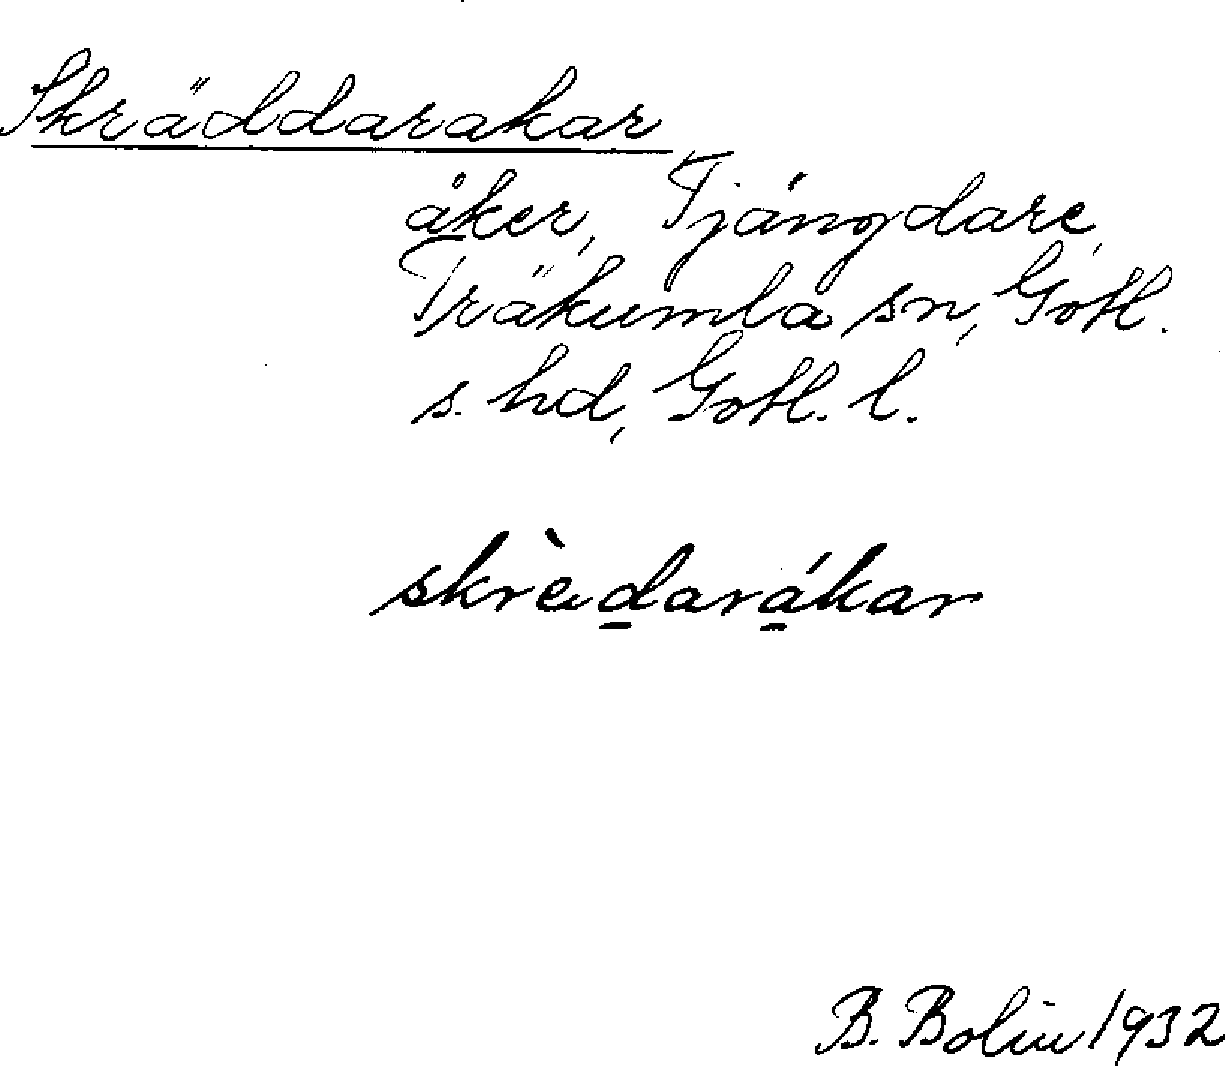 Skräddarakar
åker, Tjängdare,
Träkumla sn, Gotl.
s. hd, Gotl. l.
skrèdarákar
B. Bolin 1932